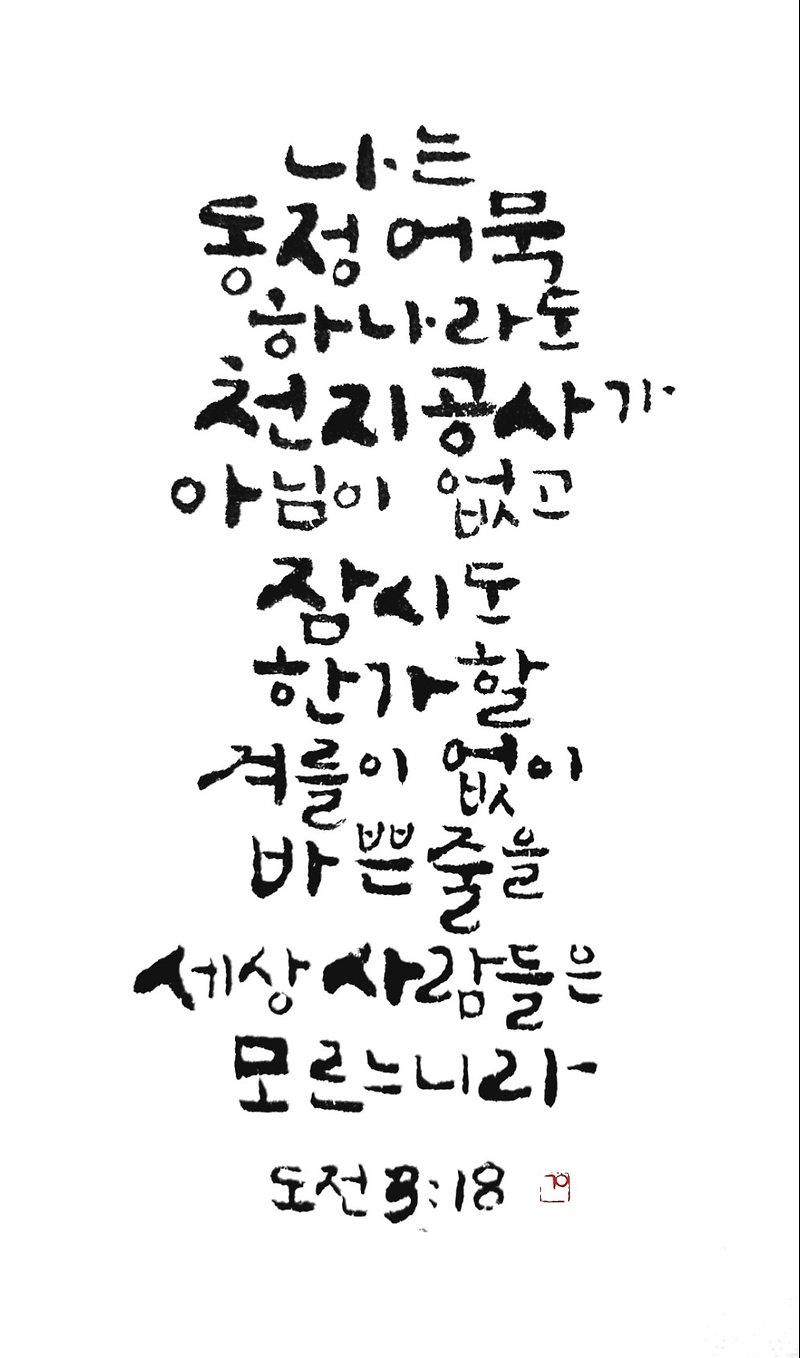 나는
동정 어묵
하나라도
천지공사가
아님이 없고
잠시도
한가할
겨를이 없이
바쁜 줄을
세상 사람들은
모르느니라
도전 3:18